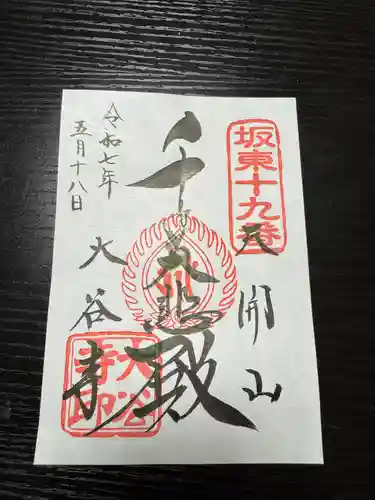 坂東十九番
天開山
千手大悲殿
大谷寺
大谷寺印
令和七年
五月十八日